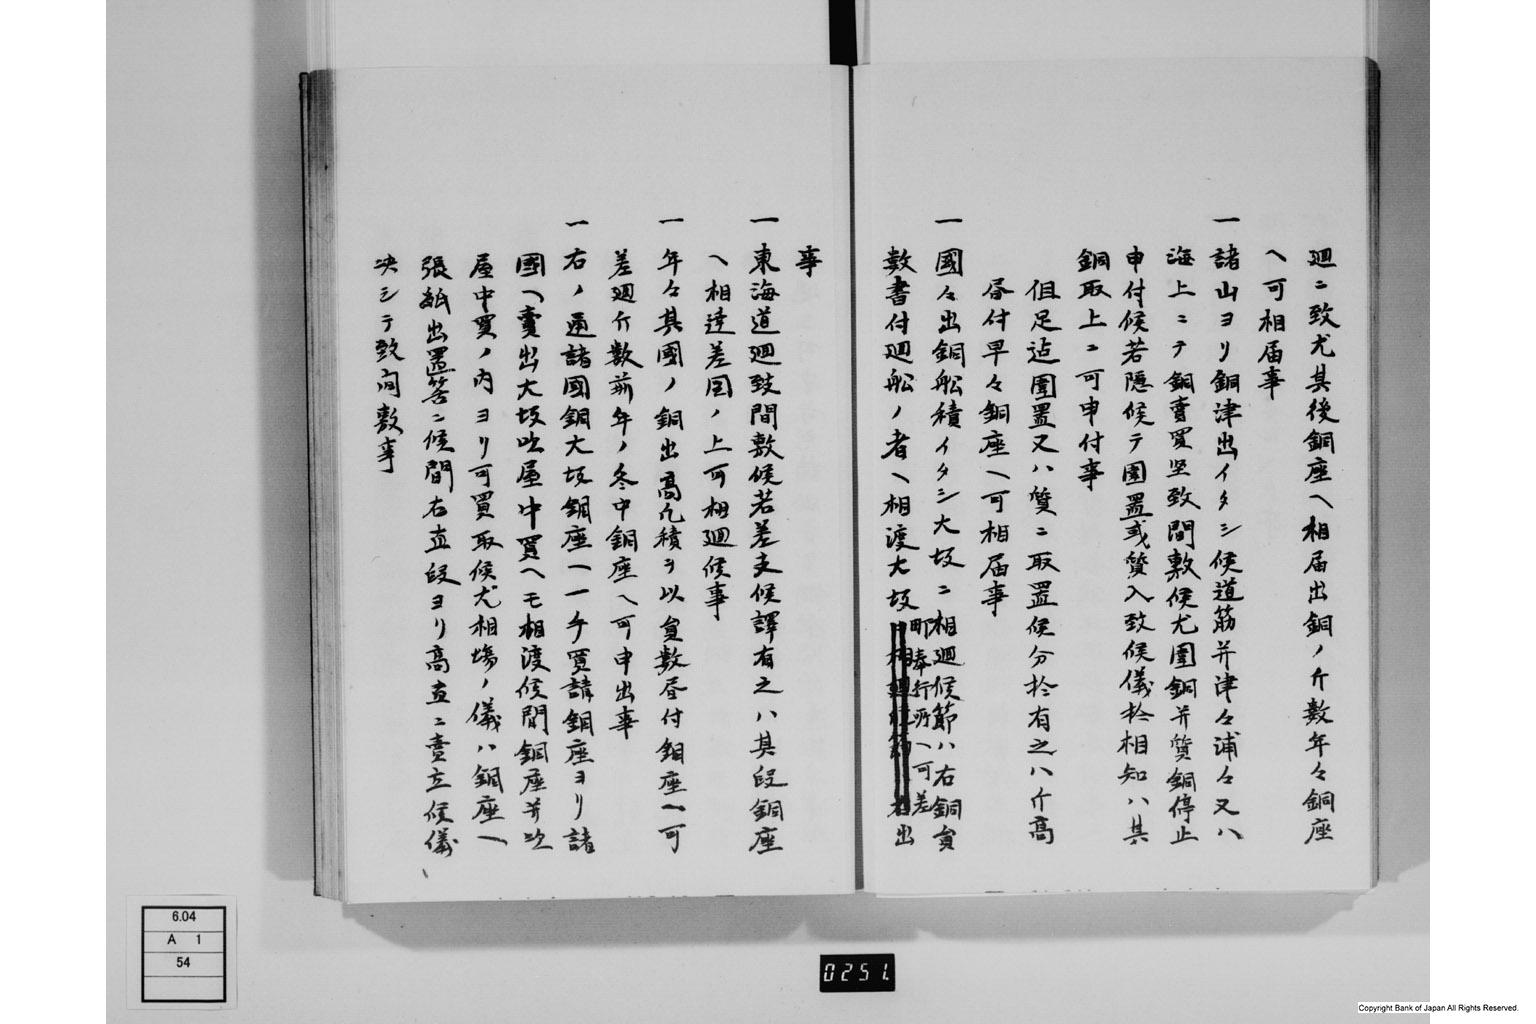 廻ニ致尤其後銅座ヘ相届出銅ノ斤数年々銅座
ヘ可相届事
一諸山ヨリ銅津出イタシ候道筋并津々浦々又ハ
海上ニテ銅賣買堅致間敷候尤圍銅并質銅停止
申付候若隠候テ圍置或質入致候儀於相知ハ其
銅取上ニ可申付事
但是迠圍置又ハ質ニ取置候分於有之ハ斤高
書付早々銅座ヘ可相届事
一國々出銅舩積イタシ大坂ニ相廻候節ハ右銅員
数書付廻舩ノ者ヘ相渡大坂町奉行所ヘ可差出
事
一東海道廻致間敷候若差支候譯有之ハ其段銅座
ヘ相達差図ノ上可相廻候事
一年々其國ノ銅出高凡積ヲ以員数書付銅座ヘ可
差廻斤数前年ノ冬中銅座ヘ可申出事
一右ノ通諸國銅大坂銅座ヘ一手買請銅座ヨリ諸
國ヘ賣出大坂吹屋中買ヘモ相渡候間銅座并吹
屋中買ノ内ヨリ可買取候尤相場ノ儀ハ銅座ヘ
張紙出置筈ニ候間右直段ヨリ高直ニ賣立候儀
决シテ致間敷事
6.04
A 1
54
0251.
Copyright Bank of Japan All Rights Reserved.